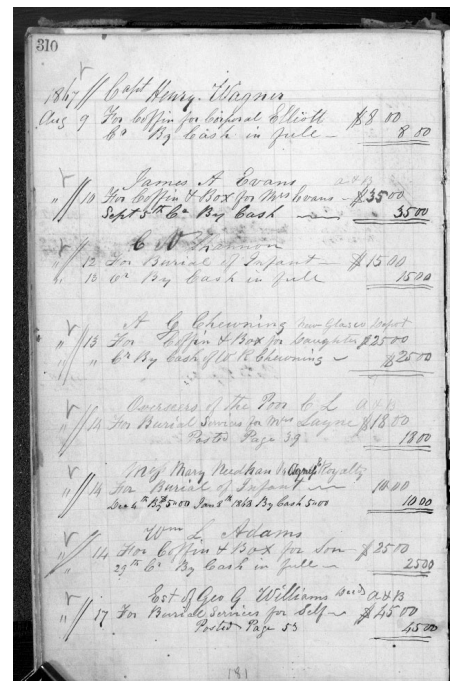 310
1867 Capt Henry Wagner
Aug 9 For Coffin for Corporal Elliott $8 00
Cr By Cash in full 8 00
James A Evans A & B
" 10 For Coffin & Box for Mrs Evans $35 00
Sept 5th Cr By Cash 35 00
C N
" 12 For Burial of Infant $15 00
" 13 Cr By Cash in full 15 00
A G Chewning New Glasgow Depot
" 13 For Coffin & Box for Daughter $25 00
" " Cr By Cash of W R Chewning $25 00
Overseers of the Poor C L A & B
" 14 For Burial Services for Mrs Layne $18 00
Posted Page 39 18 00
Mrs Mary Needham Royalty
" 14 For Burial of Infant 10 00
Dec 4th By $5 00 Jan 8th 1868 By Cash 5 00 10 00
Wm L Adams
" 14 For Coffin & Box for Son $25 00
" 29th Cr By Cash in full 25 00
Est of Geo G Williams Decd A & B
" 17 For Burial Services for Self $45 00
Posted Page 53 45 00
181